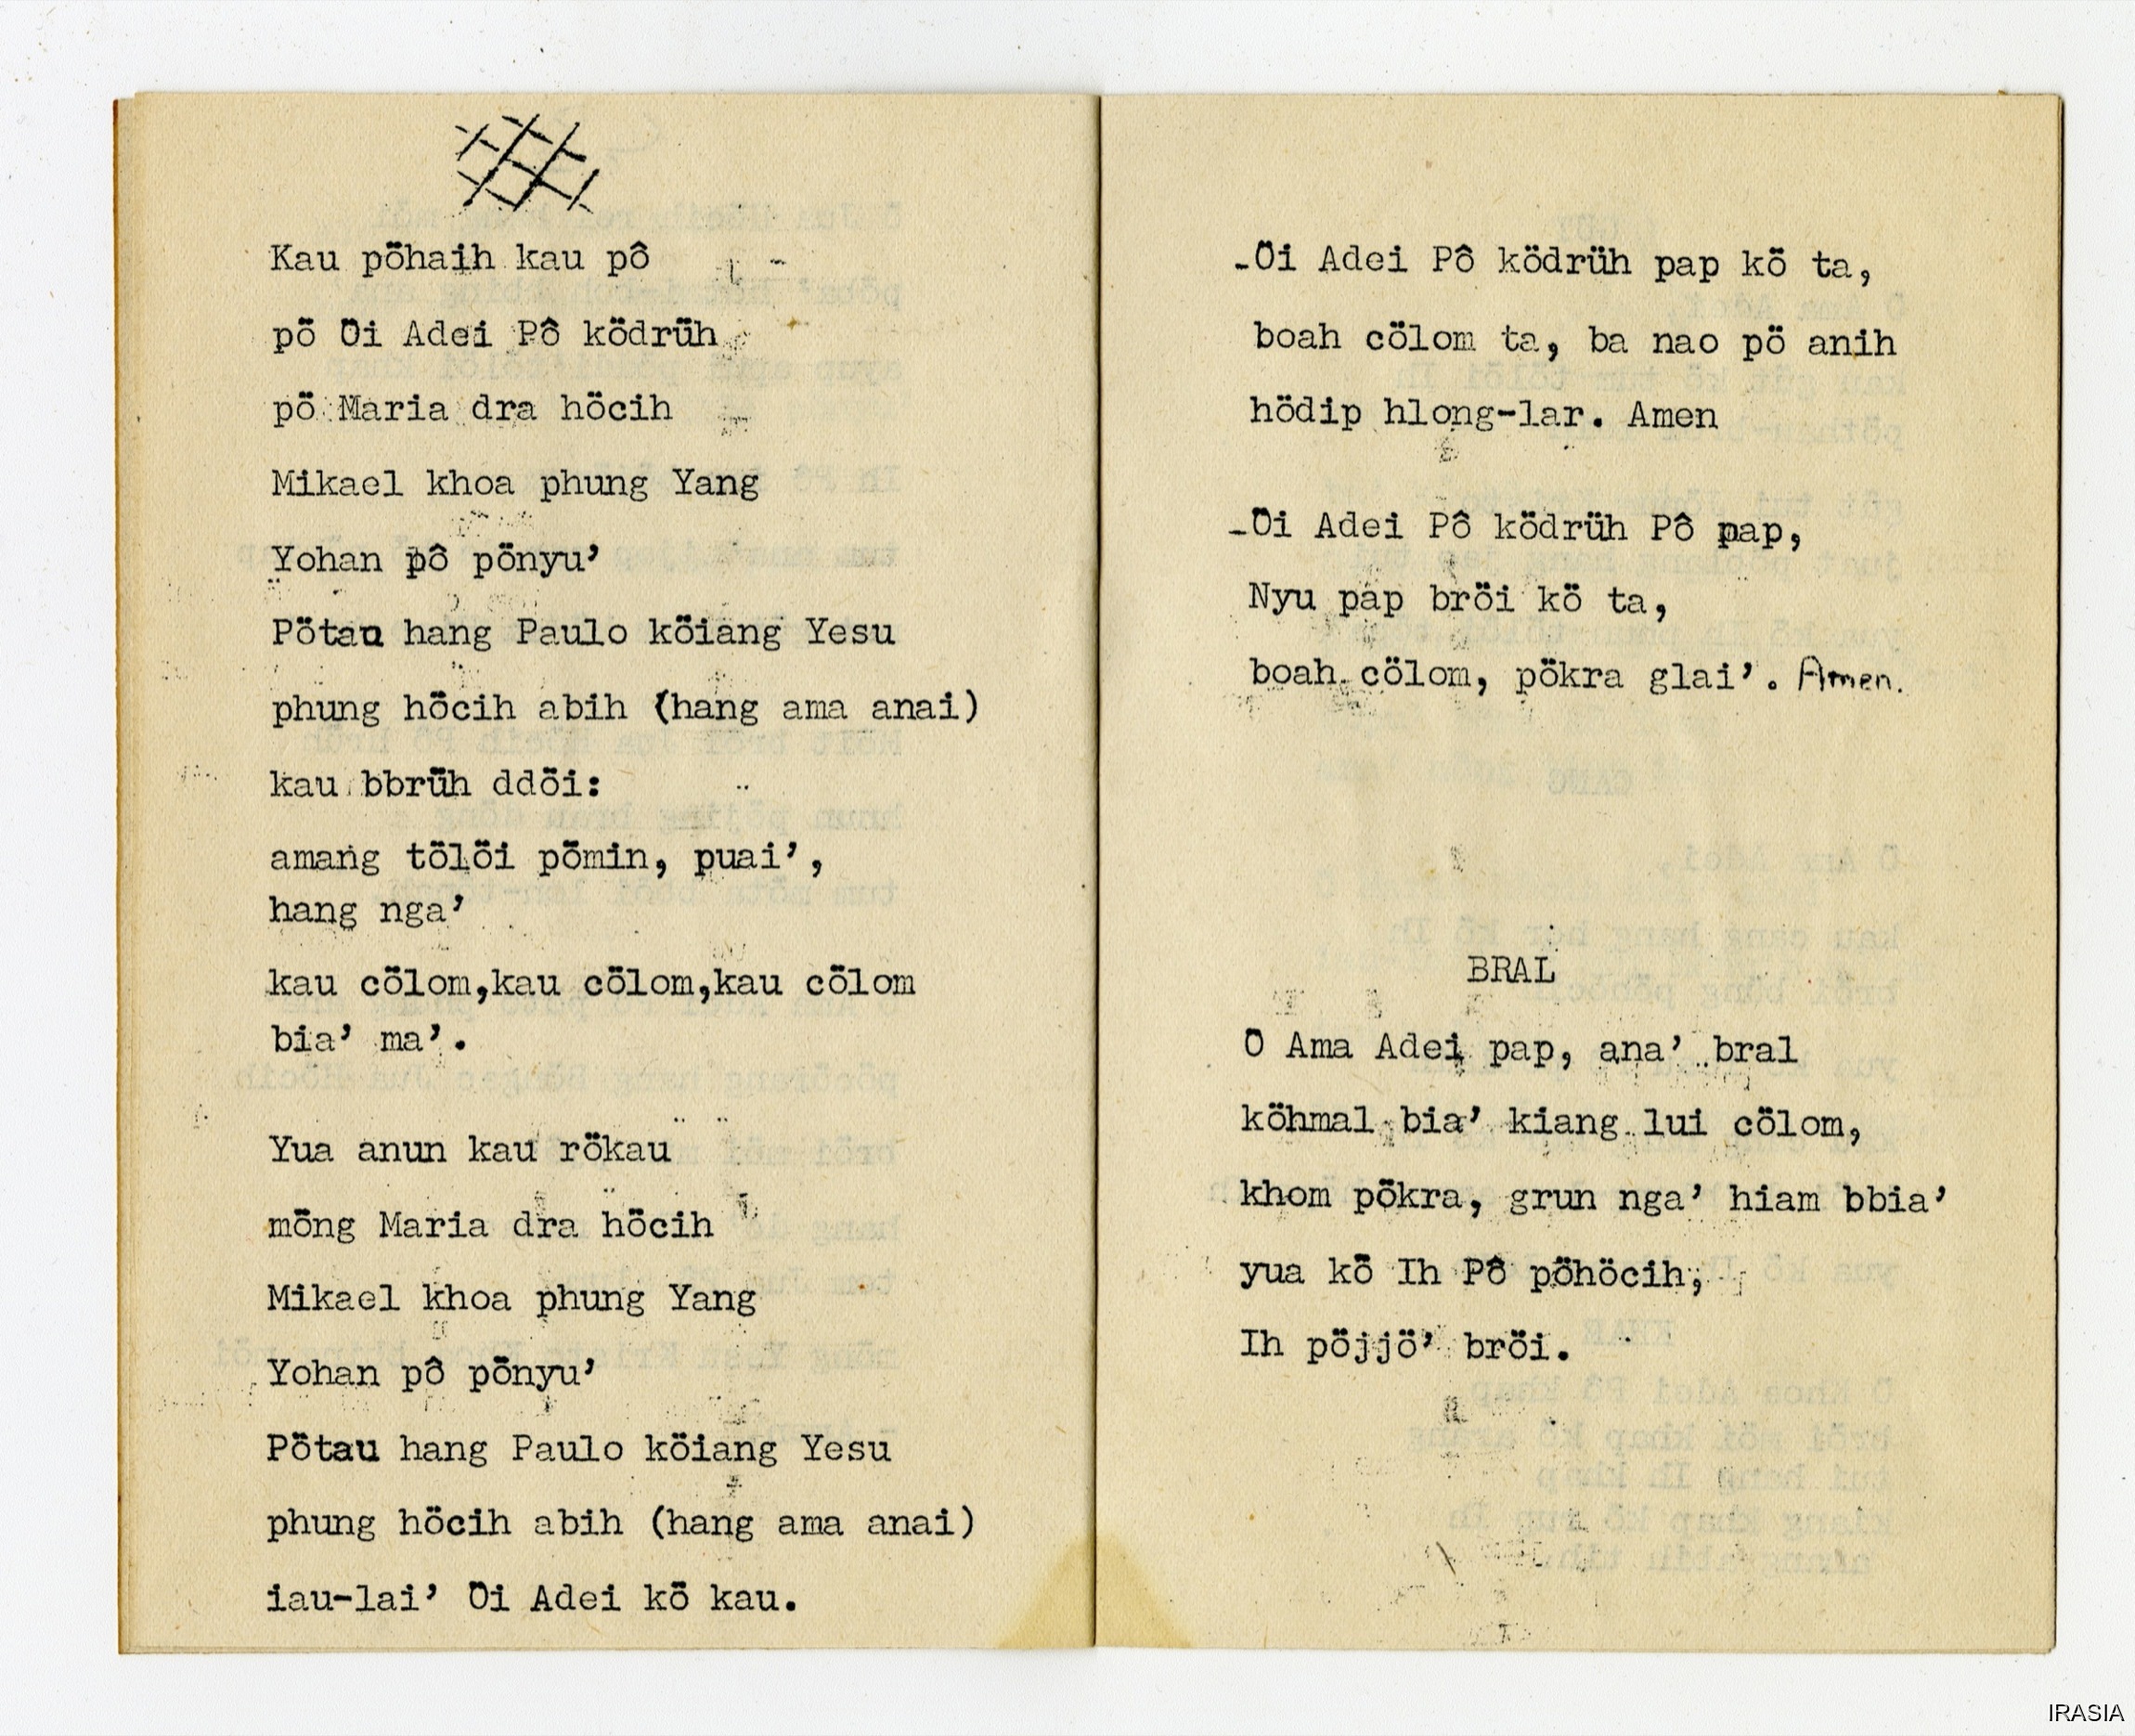 Kau pöhaih kau pô
pö Öi Adei Pô ködrüh
pö Maria dra höcih
Mikael khoa phung Yang
Yohan pô pönyu’
Pötau hang Paulo köiang Yesu
phung höcih abih (hang ama anai)
kau bbrüh ddöi:
amang tölöi pömin, puai’,
hang nga’
kau cölom,kau cölom,kau cölom
bia’ ma’.
Yua anun kau rökau
möng Maria dra höcih
Mikael khoa phung Yang
Yohan pô pönyu’
Pötau hang Paulo köiang Yesu
phung höcih abih (hang ama anai)
iau-lai’ Öi Adei kö kau.
-Öi Adei Pô ködrüh pap kö ta,
boah cölom ta, ba nao pö anih
hödip hlong-lar. Amen
-Öi Adei Pô ködrüh Pô pap,
Nyu pap bröi kö ta,
boah cölom, pökra glai’. Amen.
BRAL
O Ama Adei pap, ana’ bral
köhmal bia’ kiang lui cölom,
khom pökra, grun nga’ hiam bbia’
yua kö Ih Pô pöhöcih,
Ih pöjjö’ bröi.
IRASIA